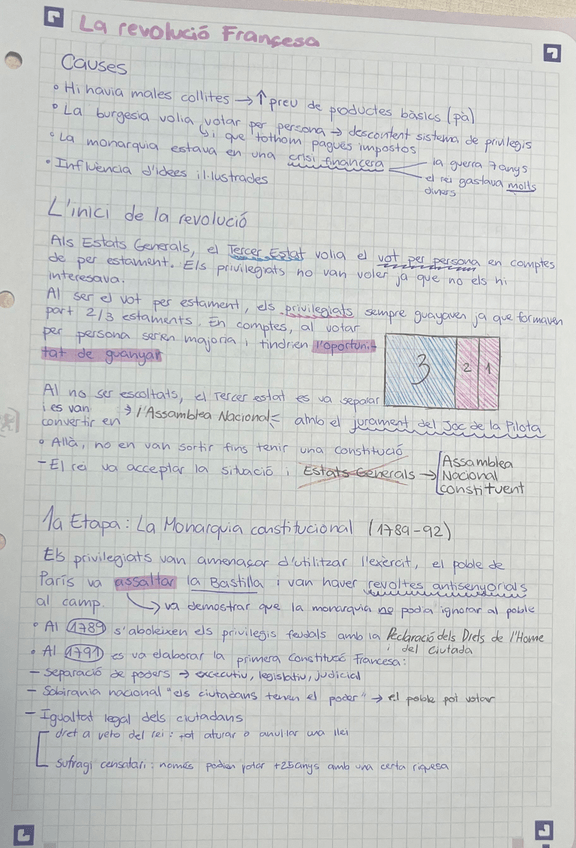 La revolució Francesa
Causes
• Hi havia males collites → ↑ preu de productes bàsics (pa)
• La burgesia volia votar per persona → descontent sistema de privilegis
↳ i que tothom pagués impostos
• La monarquia estava en una crisi financera — la guerra 7anys
— el rei gastava molts diners
• Influència d'idees il·lustrades
L'inici de la revolució
Als Estats Generals, el Tercer Estat volia el vot per persona en comptes
de per estament. Els privilegiats no van voler ja que no els hi
interesava.
Al ser el vot per estament, els privilegiats sempre guayaven ja que formaven
part 2/3 estaments. En comptes, al votar
per persona serien majoria i tindrien l'oportuni-
tat de guanyar
3 2 1
Al no ser escoltats, el Tercer estat es va separar
i es van convertir en → l'Assamblea Nacional amb el jurament del Joc de la Pilota
• Allà, no en van sortir fins tenir una constitució
– El rei va acceptar la situació i Estats Generals → Assamblea
Nacional
constituent
1a Etapa: La Monarquia constitucional (1789-92)
Els privilegiats van amenaçar d'utilitzar l'exèrcit, el poble de
París va assaltar la Bastilla i van haver revoltes antisenyorials
al camp. ↳ va demostrar que la monarquia no podia ignorar al poble
• Al 1789 s'aboleixen els privilegis feudals amb la Declaració dels Drets de l'Home
i del Ciutada
• Al 1791 es va elaborar la primera Constitució Francesa:
– Separació de poders → executiu, legislatiu, judicial
– Sobirania nacional "els ciutadans tenen el poder" → el poble pot votar
– Igualtat legal dels ciutadans
dret a veto del rei: pot aturar o anul·lar una llei
sufragi censatari: només podien votar +25anys amb una certa riquesa